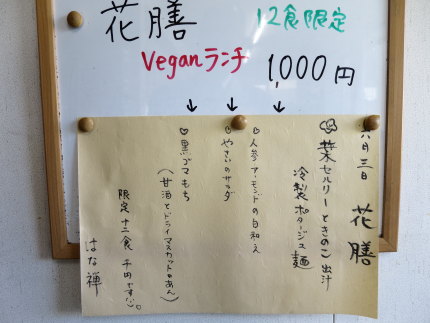 花膳
12食限定
Veganランチ
1,000円
六月三日 花膳
葉セルリーときのこ出汁
冷製ポタージュ麺
人参アーモンドの白和え
やさいのサラダ
黒ゴマもち
(甘酒とドライマスカットのあん)
限定十二食 千円です。
はな禅